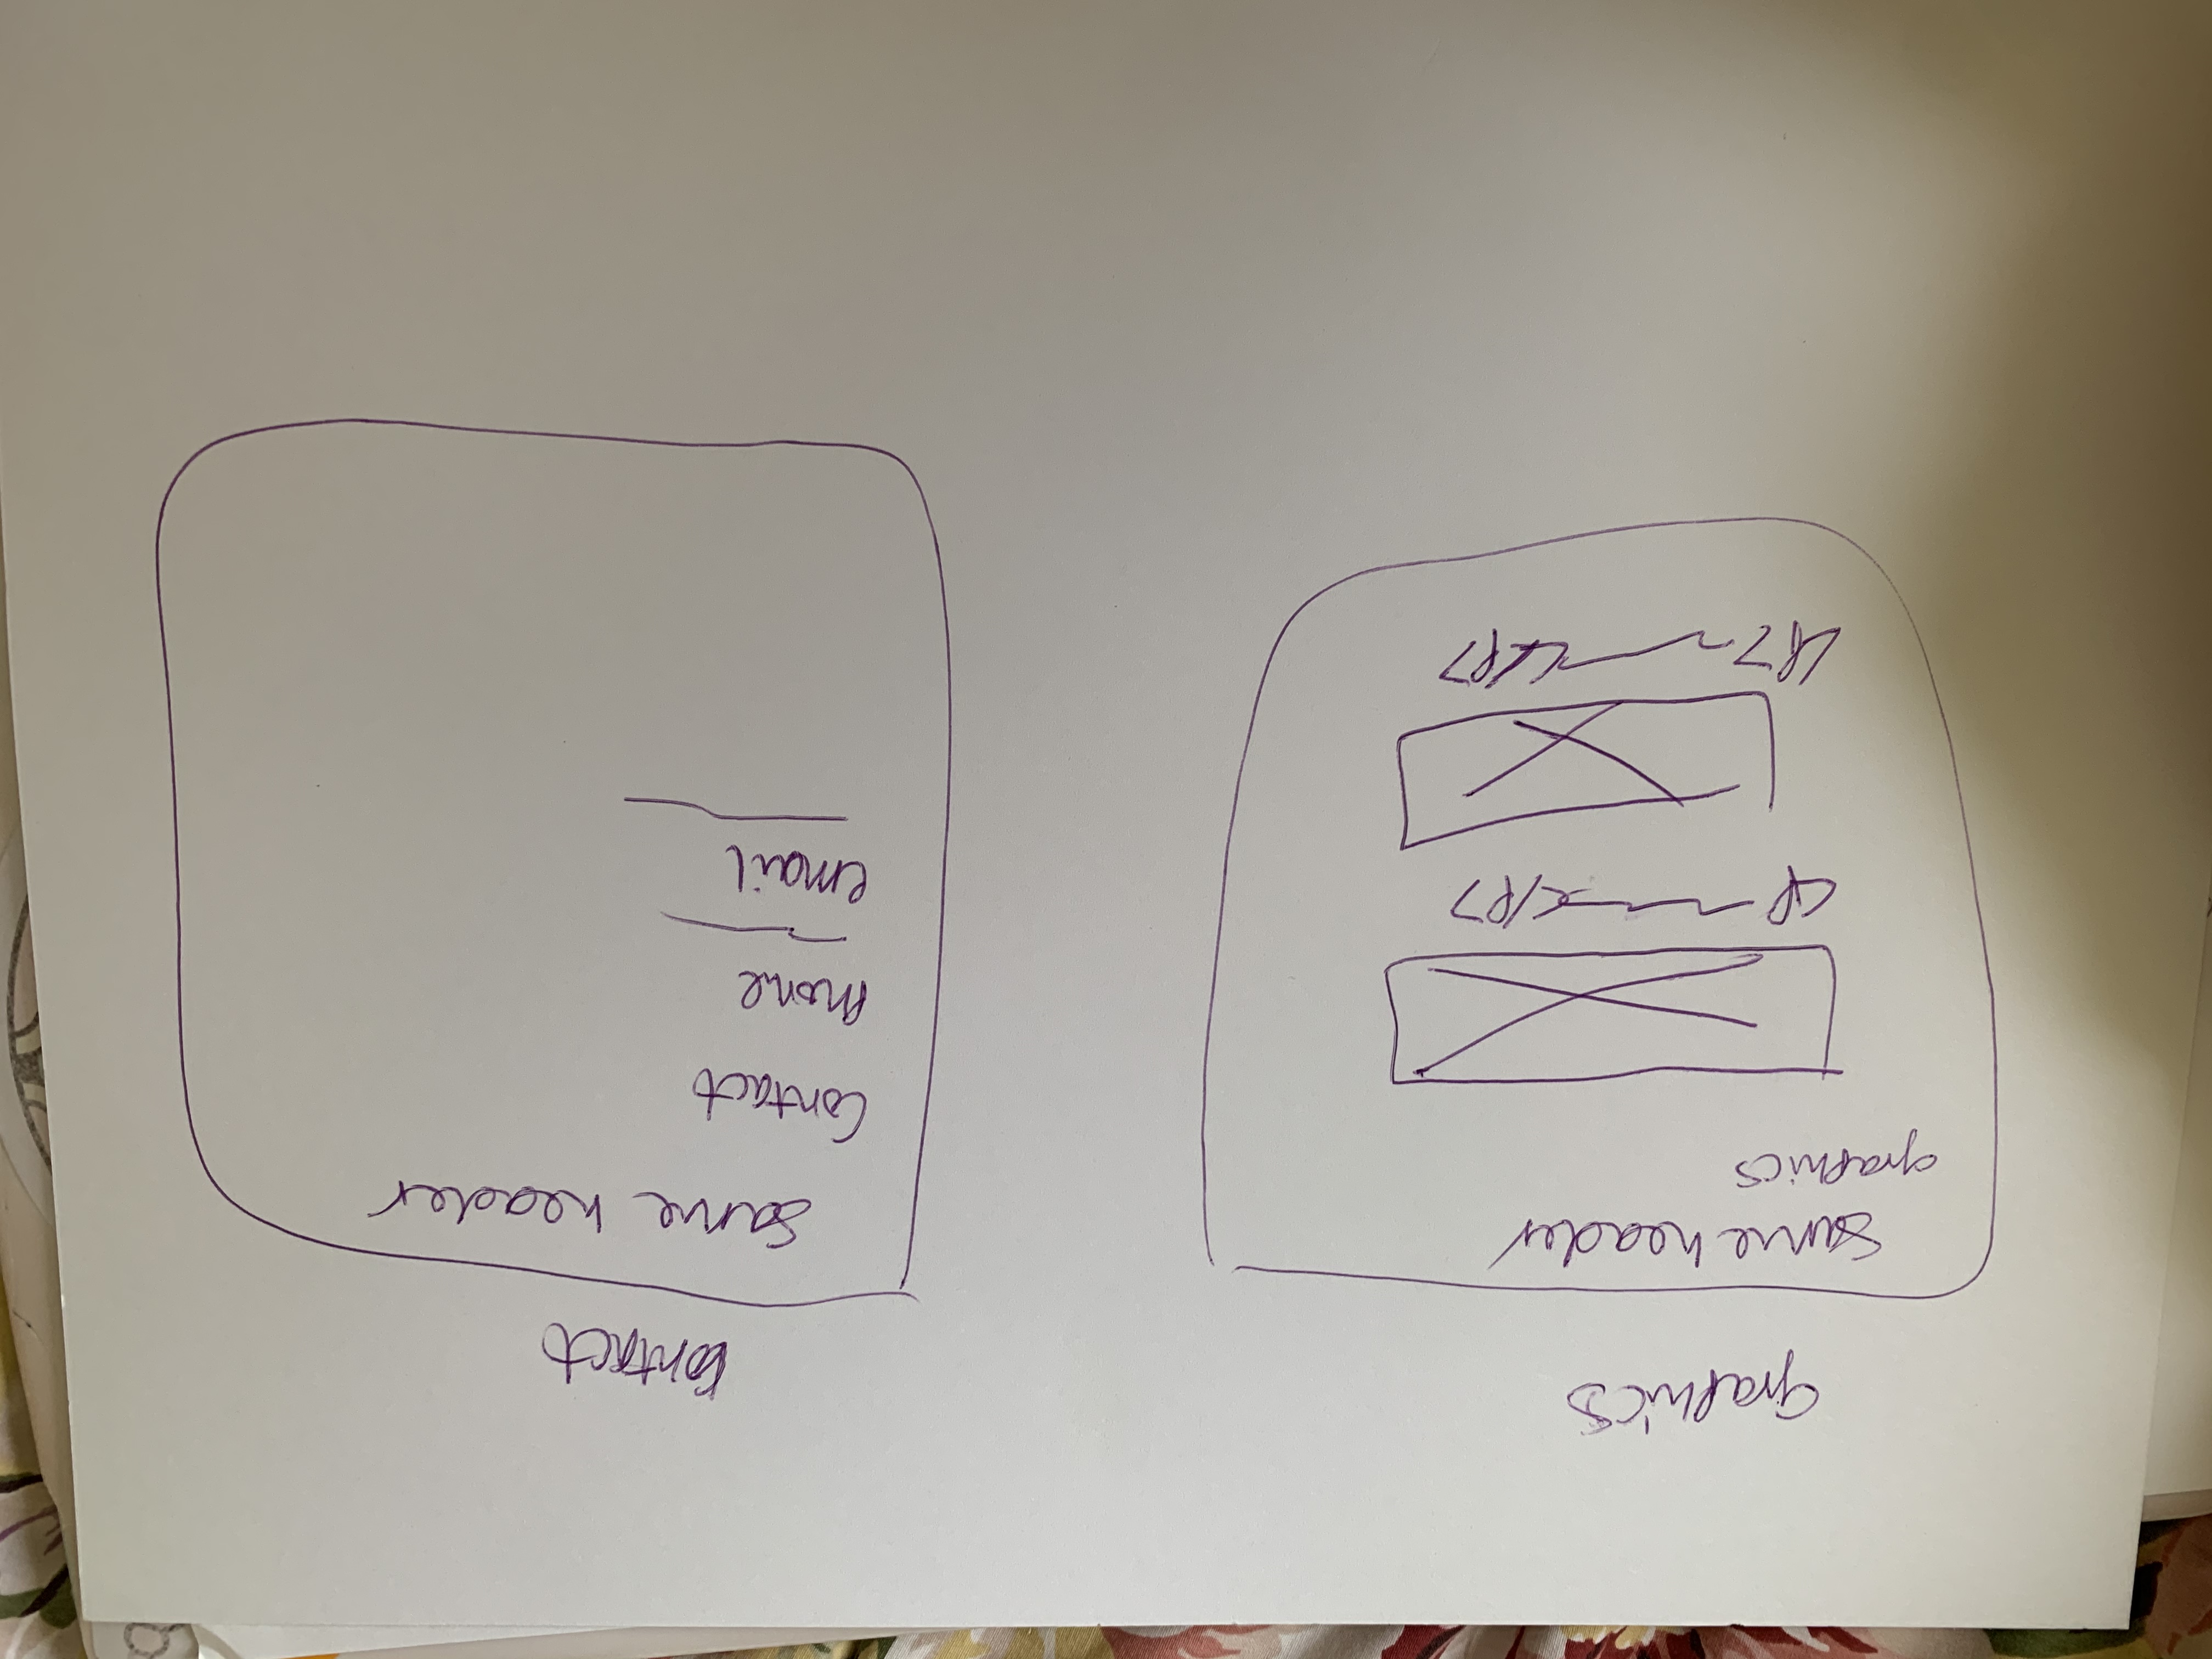 Graphics
Same header
graphics
<p </p>
<p> </p>
Contact
Same header
Contact
Phone
email